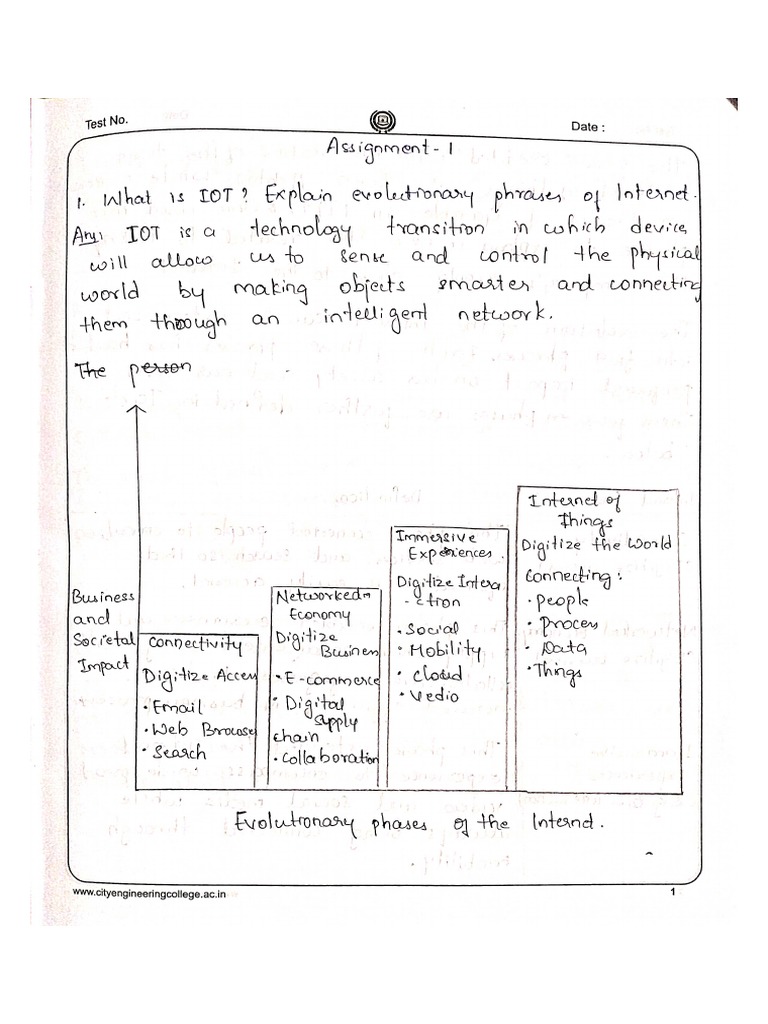 Test No.
Date :
Assignment - 1
1. What is IOT? Explain evolutionary phrases of Internet.
Ans: IOT is a technology transition in which device
will allow us to sense and control the physical
world by making objects smarter and connecting
them through an intelligent network.
The person
Business
and
Societal
Impact
Connectivity
Digitize Access
• Email
• Web Browse
• Search
Networked
Economy
Digitize
Business
• E-commerce
• Digital
Supply
chain
• Collaboration
Immersive
Experiences.
Digitize Intera
-ction
• Social
• Mobility
• Cloud
• Vedio
Internet of
Things
Digitize the World
Connecting :
• People
• Process
• Data
• Things
Evolutionary phases of the Internd.
www.cityengineeringcollege.ac.in
1